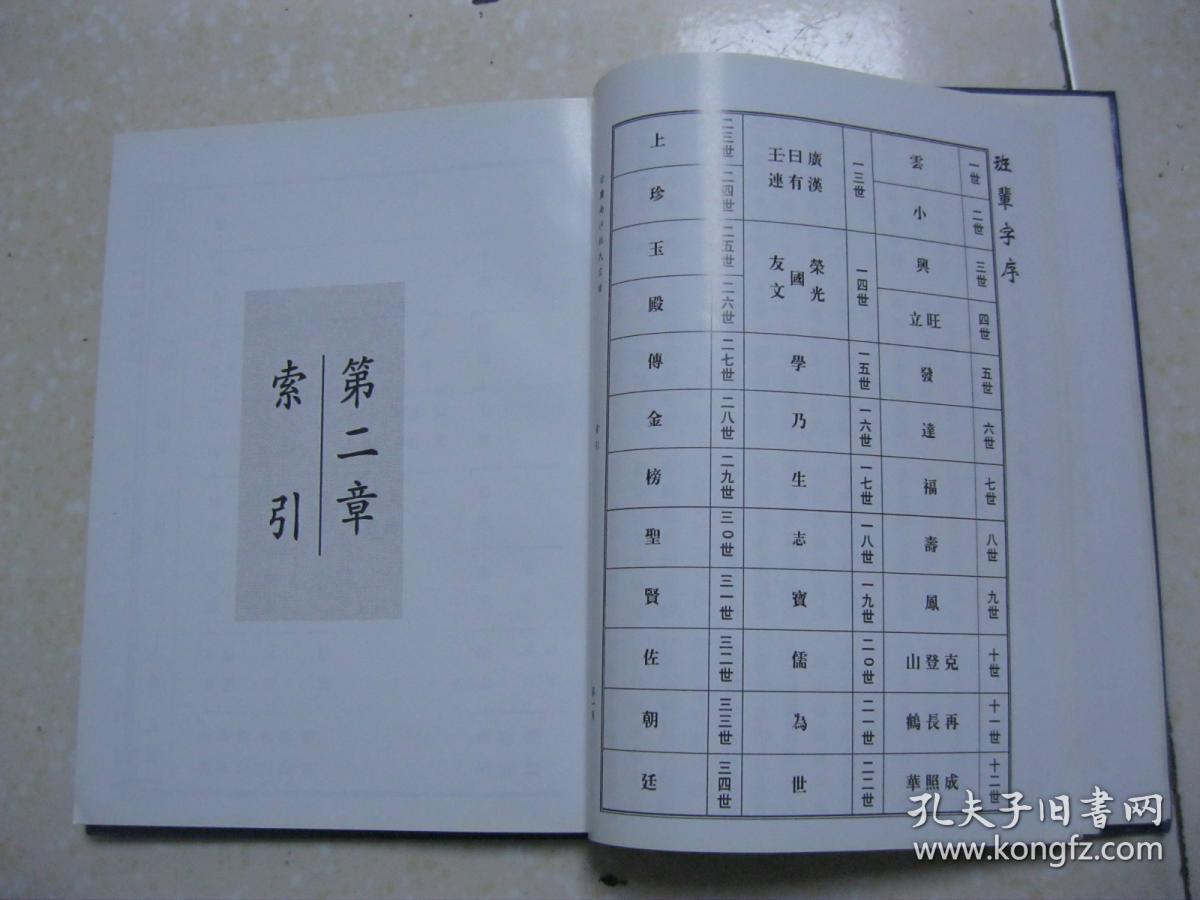 班輩字序
一世 雲
二世 小
三世 興
四世 旺立
五世 發
六世 達
七世 福
八世 壽
九世 鳳
十世 克登山
十一世 再長鶴
十二世 成照華
一三世 廣漢曰有壬連
一四世 榮光國友文
一五世 學
一六世 乃
一七世 生
一八世 志
一九世 寶
二〇世 儒
二一世 為
二二世 世
二三世 上
二四世 珍
二五世 玉
二六世 殿
二七世 傳
二八世 金
二九世 榜
三〇世 聖
三一世 賢
三二世 佐
三三世 朝
三四世 廷
第二章
索引
孔夫子旧書网
www.kongfz.com